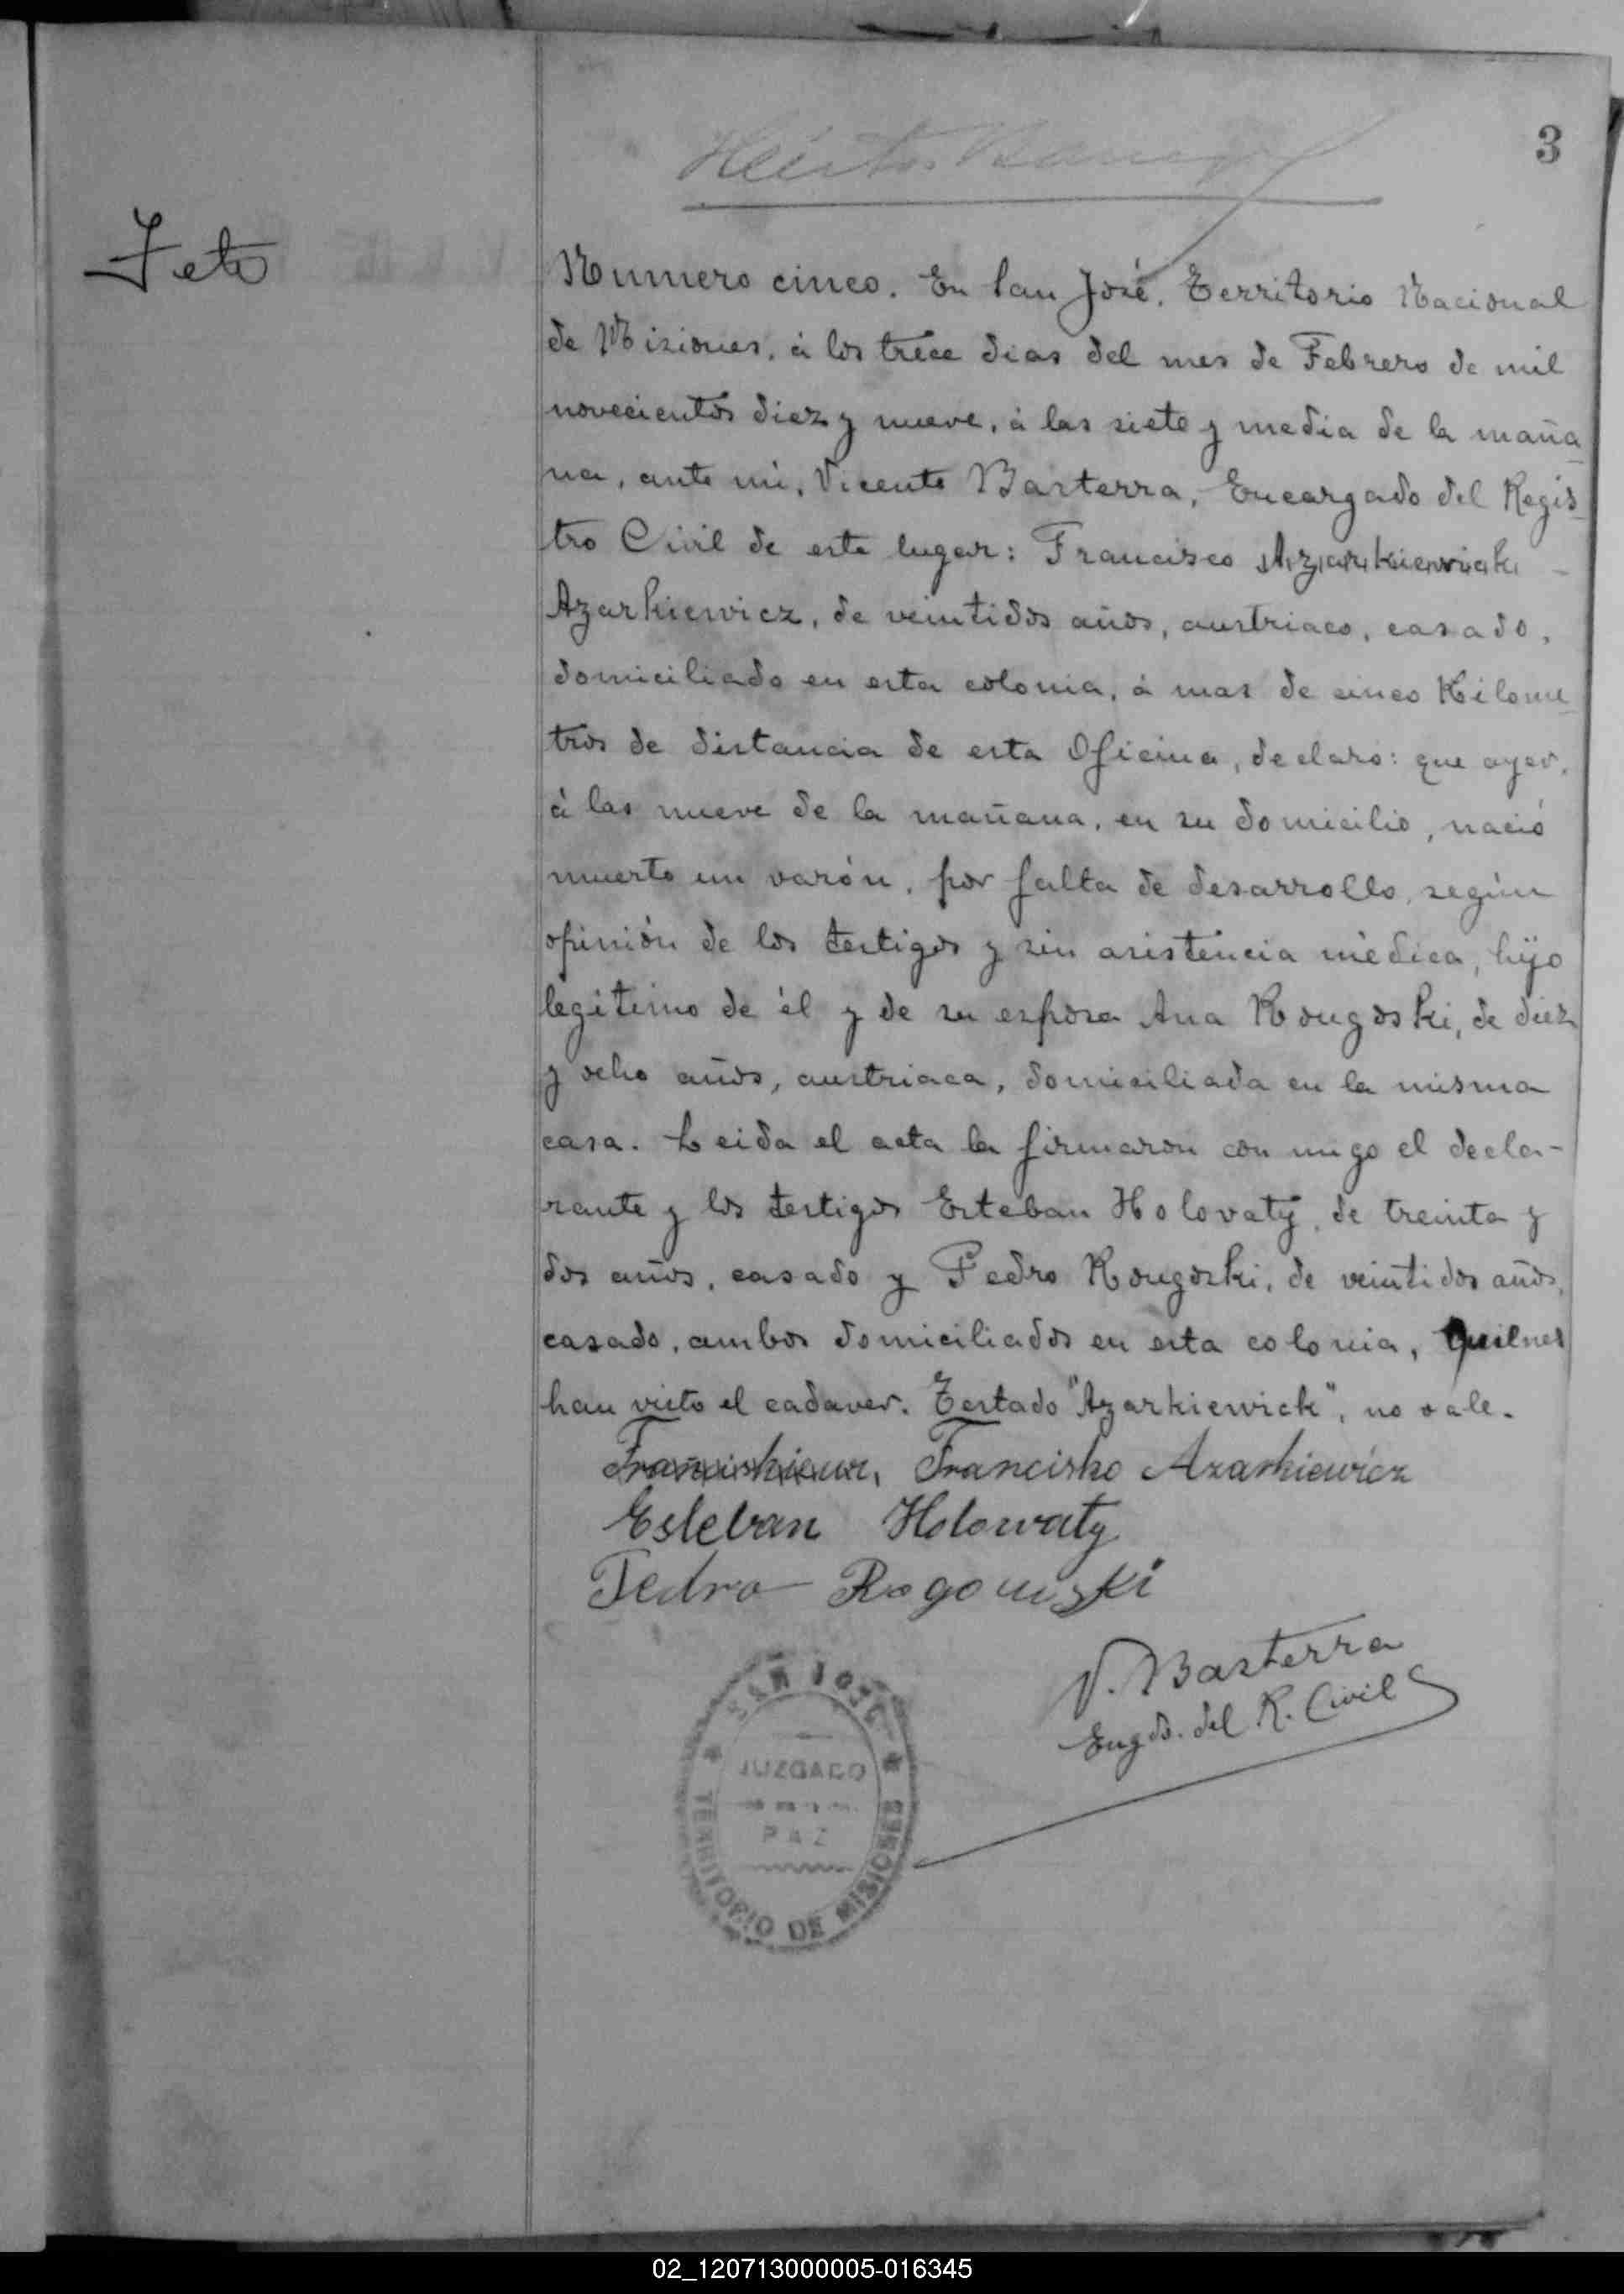 3
Feto
Numero cinco. En San José, Territorio Nacional
de Misiones, á los trece dias del mes de Febrero de mil
novecientos diez y nueve, á las siete y media de la maña
na, ante mi, Vicente Basterra, Encargado del Regis
tro Civil de este lugar: Francisco Azarkiewick -
Azarkiewicz, de veintidos años, austriaco, casado,
domiciliado en esta colonia, á mas de cinco Kilome
tros de distancia de esta Oficina, declaro: que ayer,
á las nueve de la mañana, en su domicilio, nació
muerto un varón, por falta de desarrollo, según
opinión de los testigos y sin asistencia médica, hijo
legitimo de él y de su esposa Ana Rougoski, de diez
y ocho años, austriaca, domiciliada en la misma
casa. Leida el acta la firmaron con migo el decla-
rante y los testigos Esteban Holovaty, de treinta y
dos años, casado y Pedro Rougoski, de veintidos años,
casado, ambos domiciliados en esta colonia, quienes
han visto el cadaver. Testado "Azarkiewick", no vale.
Francisko Azarkiewicz
Esteban Holowaty
Pedro Rogowski
V. Basterra
Engdo. del R. Civil
SAN JOSE
JUZGADO
PAZ
TERRITORIO DE MISIONES
02_120713000005-016345